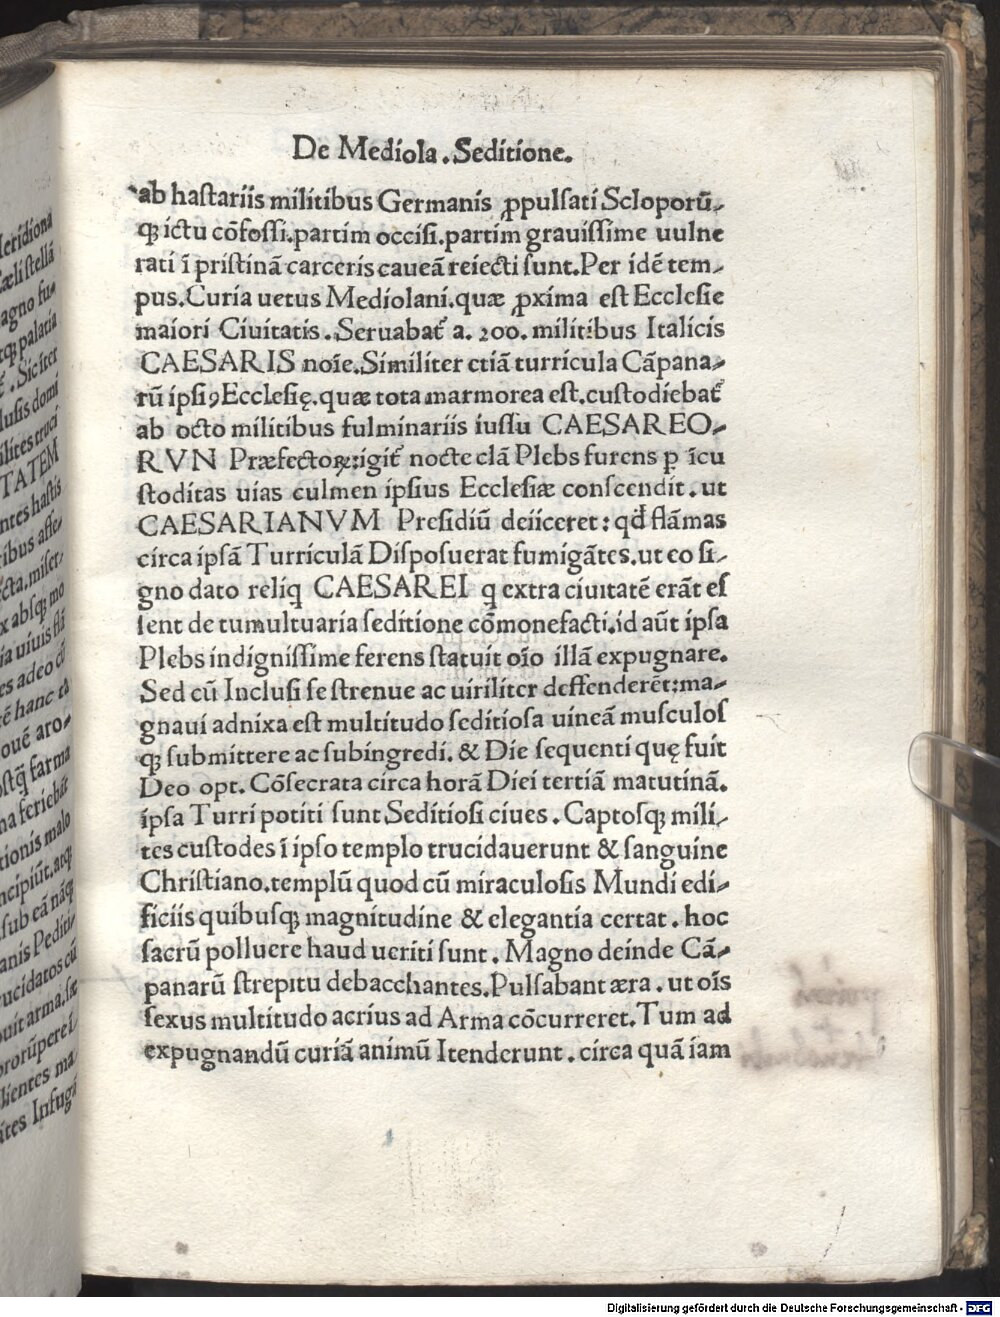 De Mediola . Seditione.
ab hastariis militibus Germanis ꝓpulsati Scloporū-
qꝫ ictu cōfossi.partim occisi.partim grauissime uulne
rati ī pristinā carceris caueā reiecti sunt.Per idē tem-
pus.Curia uetus Mediolani.quæ ꝓxima est Ecclesie
maiori Ciuitatis . Seruabat᷑ a. 200. militibus Italicis
CAESARIS noīe.Similiter etiā turricula Cāpana-
rū ipsiꝰ Ecclesię.quæ tota marmorea est.custodiebat᷑
ab octo militibus fulminariis iussu CAESAREO-
RVN Præfectoꝝ:igit᷑ nocte clā Plebs furens ꝑ īcu
stoditas uias culmen ipsius Ecclesiæ conscendit . ut
CAESARIANVM Presidiū deiiceret : qđ flāmas
circa ipsā Turriculā Disposuerat fumigātes.ut eo si-
gno dato reliq CAESAREI q extra ciuitatē erāt es
sent de tumultuaria seditione cōmonefacti.id aūt ipsa
Plebs indignissime ferens statuit oīo illā expugnare.
Sed cū Inclusi se strenue ac uiriliter deffenderēt:ma-
gnaui adnixa est multitudo seditiosa uineā musculos
qꝫ submittere ac subingredi. & Die sequenti quę fuit
Deo opt. Cōsecrata circa horā Diei tertiā matutinā.
ipsa Turri potiti sunt Seditiosi ciues . Captosqꝫ mili-
tes custodes ī ipso templo trucidauerunt & sanguine
Christiano.templū quod cū miraculosis Mundi edi-
ficiis quibusqꝫ magnitudine & elegantia certat . hoc
sacrū polluere haud ueriti sunt . Magno deinde Cā-
panarū strepitu debacchantes.Pulsabant æra . ut oīs
sexus multitudo acrius ad Arma cōcurreret.Tum ad
expugnandū curiā animū Itenderunt . circa quā iam
Digitalisierung gefördert durch die Deutsche Forschungsgemeinschaft - DFG